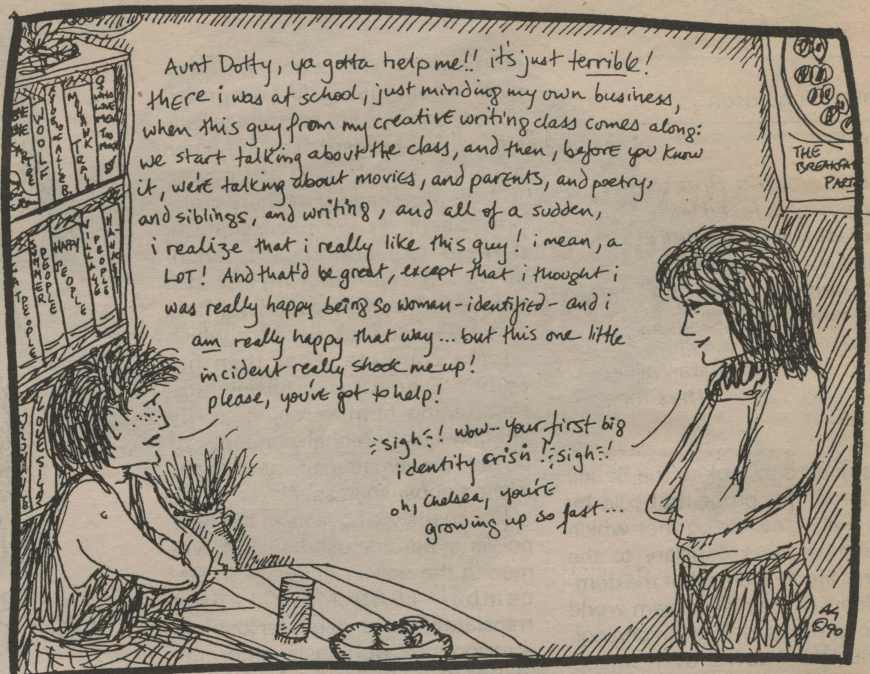 Aunt Dotty, ya gotta help me!! it's just terrible!
there i was at school, just minding my own business,
when this guy from my creative writing class comes along:
we start talking about the class, and then, before you know
it, we're talking about movies, and parents, and poetry,
and siblings, and writing, and all of a sudden,
i realize that i really like this guy! i mean, a
LOT! And that'd be great, except that i thought i
was really happy being so woman-identified - and i
am really happy that way... but this one little
incident really shook me up!
please, you've got to help!
sigh! wow-- your first big
identity crisis! sigh!
oh, Chelsea, you're
growing up so fast...
THE
BREAKFAST
PARTY
WOOLF
MOHAWK
TRAIL
SUMMER
PEOPLE
HAPPY
PEOPLE
VILLAGE
PEOPLE
©90